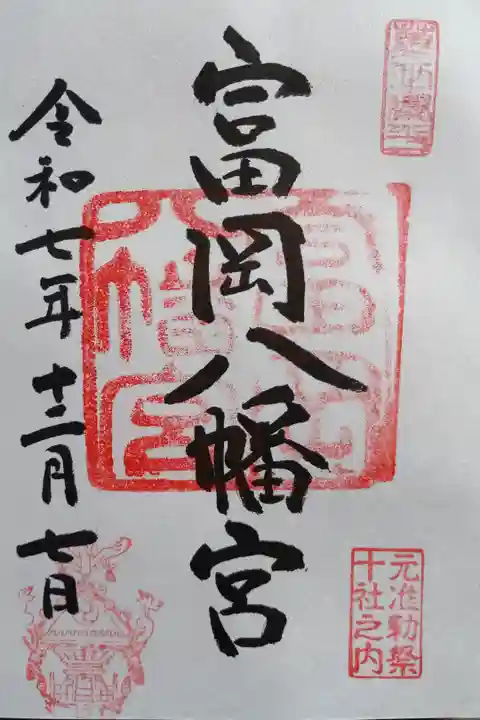 富岡八幡宮
元准勅祭
十社之内
令和七年十二月七日